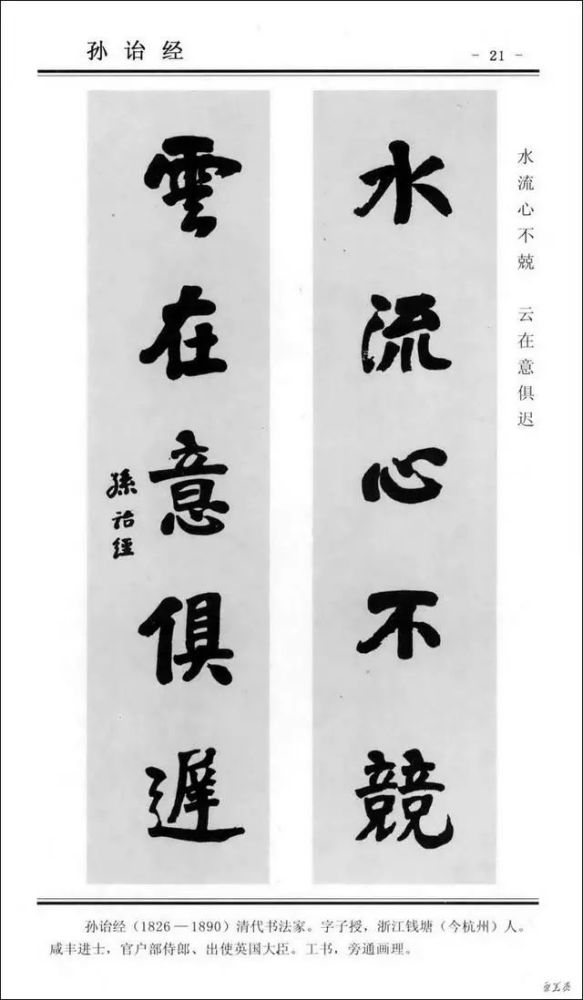 孙诒经
- 21 -
水流心不兢 云在意俱迟
水流心不競
雲在意俱遲
孫詒經
孙诒经（1826—1890）清代书法家。字子授，浙江钱塘（今杭州）人。
咸丰进士，官户部侍郎、出使英国大臣。工书，旁通画理。